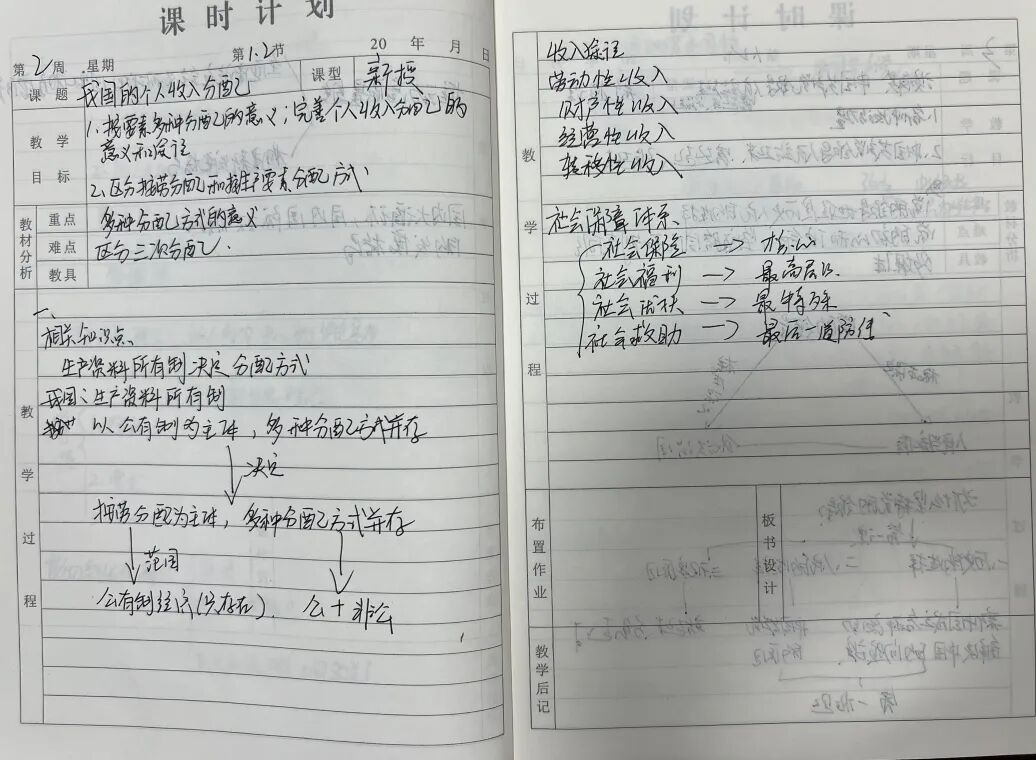 课时计划
第2周 星期 第1.2节 20 年 月 日
课题 我国的个人收入分配 课型 新授
教学目标
1.按要素多种分配的意义；完善个人收入分配的
意义和途径
2.区分按劳分配和按生产要素分配方式
教材分析
重点 多种分配方式的意义
难点 区分三次分配.
教具
教学过程
一、
相关知识点、
生产资料所有制 决定 分配方式
我国：生产资料所有制
以公有制为主体，多种分配方式并存
决定
按劳分配为主体，多种分配方式并存
范围
公有制经济(只存在). 公+非公
教学过程
收入途径
劳动性收入
财产性收入
经营性收入
转移性收入
社会保障体系
社会保险 → 核心
社会福利 → 最高层次.
社会优抚 → 最特殊
社会救助 → 最后一道防线
布置作业
板书设计
教学后记